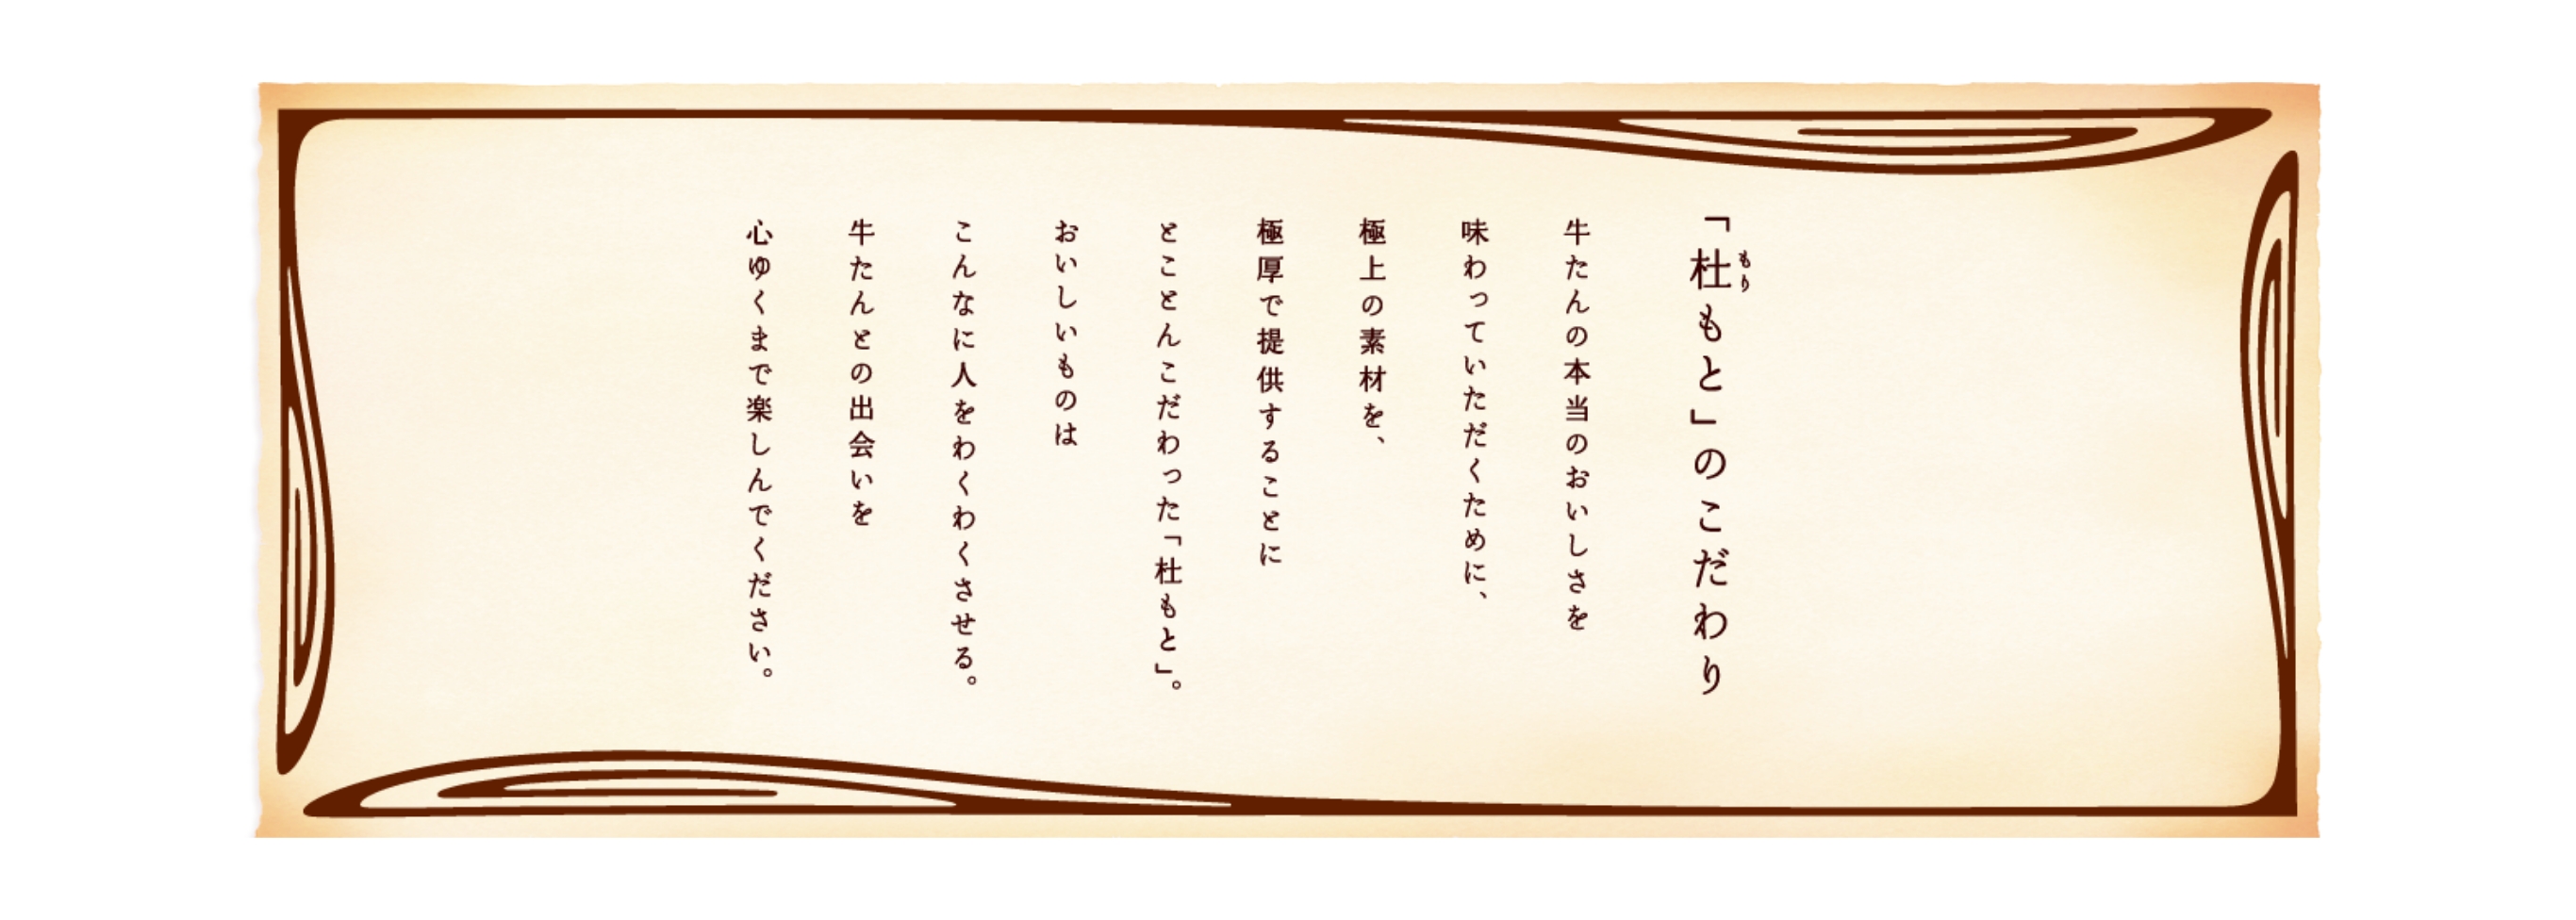 「杜もと」のこだわり
もり
牛たんの本当のおいしさを
味わっていただくために、
極上の素材を、
極厚で提供することに
とことんこだわった「杜もと」。
おいしいものは
こんなに人をわくわくさせる。
牛たんとの出会いを
心ゆくまで楽しんでください。